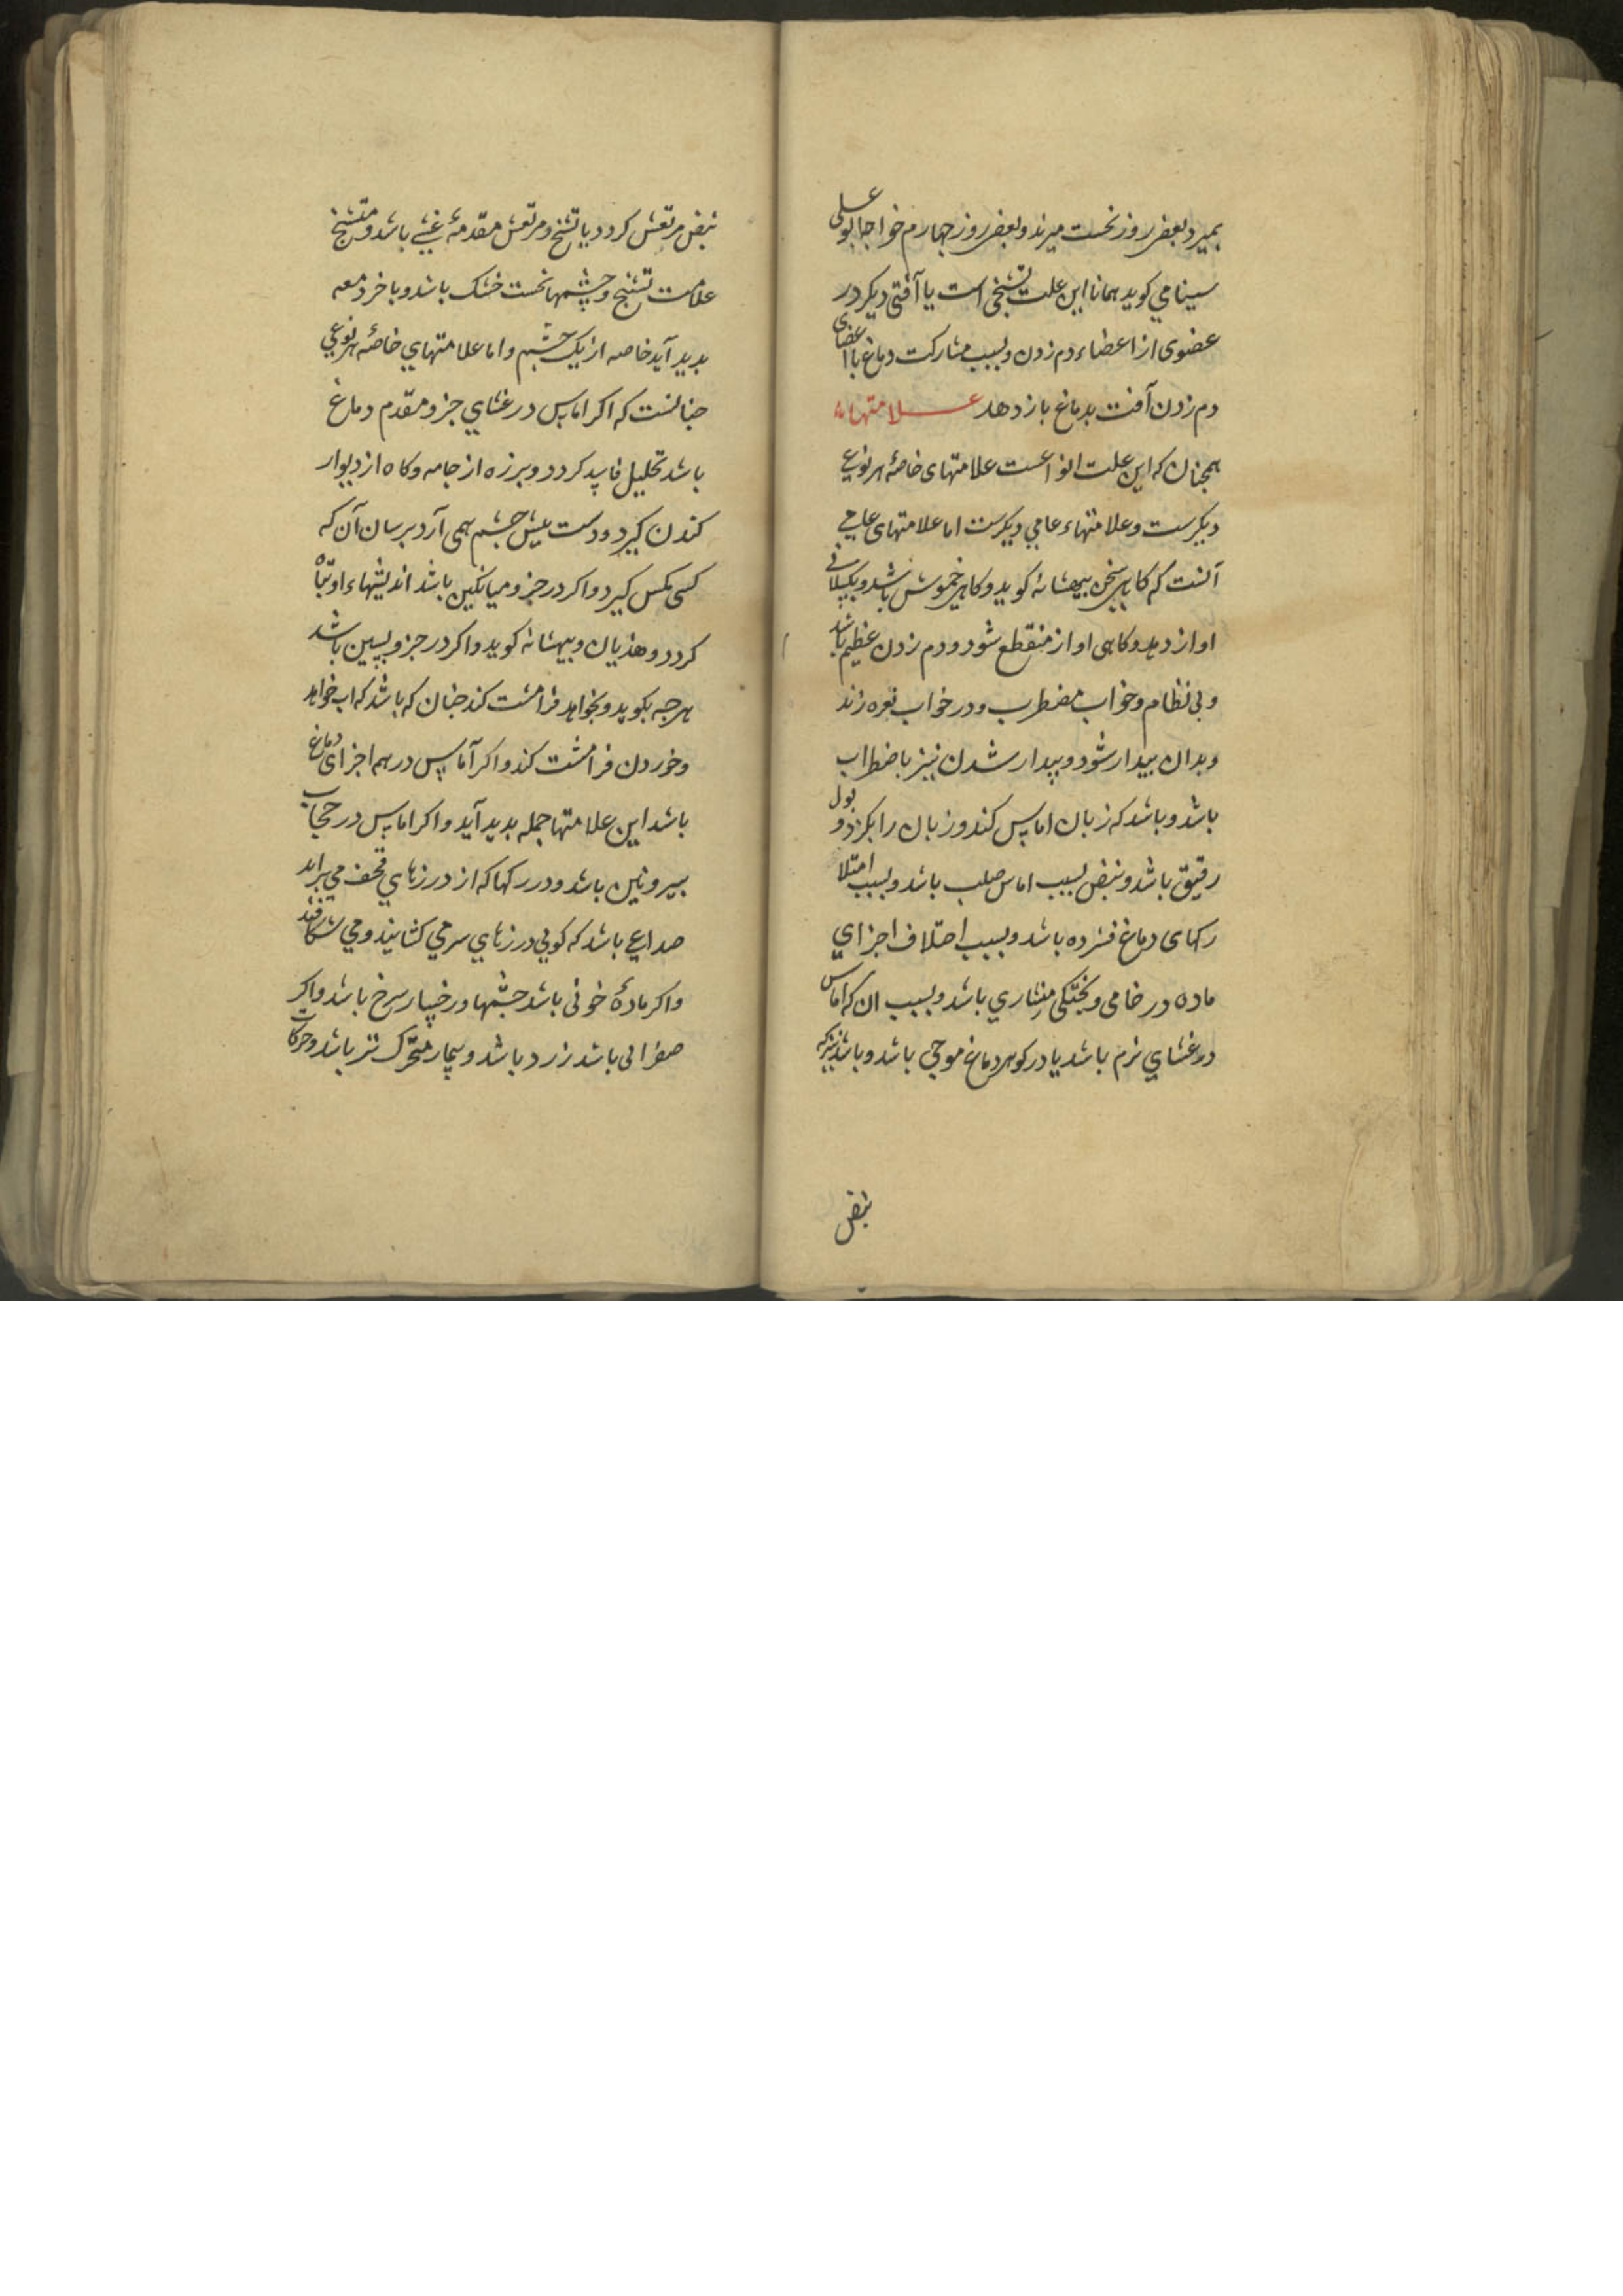 بمیرد بعضی روز نخست میرند و بعضی روز چهارم خواجا بوعلی
سینا می کوید همانا این علت تشنجی است یا آفتی دیکر در
عضوی از اعضاء دم زدن و بسبب مشارکت دماغ با اعضای
دم زدن آفت بدماغ باز دهد علامتهاء
همجنان که این علت انواعست علامتهای خاصهٔ هر نوعی
دیکرست و علامتهاء عامی دیکرست اما علامتهای عامی
آنست که کاهی سخن بیهشانه کوید و کاهی خموش باشد و بکسلانی
اواز دهد و کاهی اواز منقطع شود و دم زدن عظیم باشد
و بی نظام و خواب مضطرب و در خواب نعره زند
و بدان بیدار شود و بیدار شدن نیز باضطراب
باشد و باشد که زبان اماس کند و زبان را بکزد و بول
رقیق باشد و نبض بسبب اماس صلب باشد و بسبب امتلا
رکهای دماغ فشرده باشد و بسبب اختلاف اجزای
ماده در خامی و بختکی منشاری باشد و بسبب ان که اماس
در غشای نرم باشد یا در کوهر دماغ موجی باشد و باشد نیز که
نبض
نبض مرتعش کردد یا تشنج و مرتعش مقدمهٔ غشی باشد و متشنج
علامت تشنج و چشمها نخست خشک باشد و باخر دمعه
بدید آید خاصه از یک چشم و اما علامتهای خاصهٔ هر نوعی
جنانست که اکر اماس در غشای جزو مقدم دماغ
باشد تخلیل فاسد کردد و برزه از جامه و کاه از دیوار
کندن کیرد و دست بیش چشم همی آرد برسان آن که
کسی مکس کیرد و اکر در جزو میانکین باشد اندیشهاء او تباه
کردد و هذیان و بیهشانه کوید و اکر در جزو بسین باشد
هرجه بکوید و بخواهد فرامشت کند جنان که باشد که اب خواهد
و خوردن فرامشت کند و اکر آماس در همه اجزای دماغ
باشد این علامتها جمله بدید آید و اکر اماس در حجاب
بیرونین باشد و در رکها که از درزهای قحف می براید
صداعی باشد که کویی درزهای سر می کشایند و می شکافند
و اکر مادهٔ خونی باشد چشمها و رخسار سرخ باشد و اکر
صفرایی باشد زرد باشد و بیمار متحرک تر باشد و حرکات